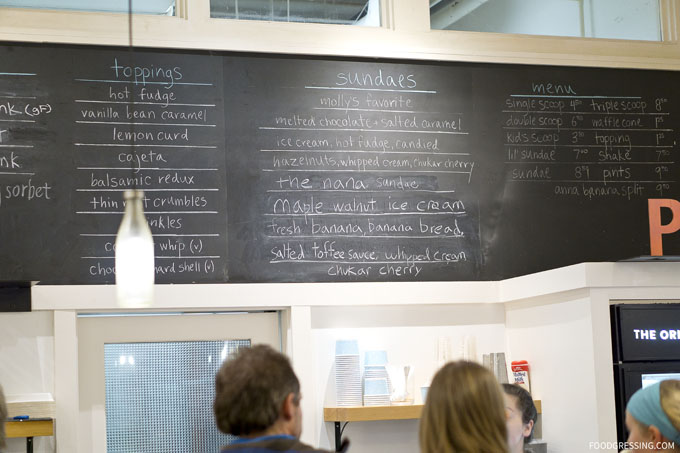 nk. (gF)
nk
sorbet
toppings
hot fudge
vanilla bean caramel
lemon curd
cajeta
balsamic redux
thin crumbles
whip (v)
hard shell (v)
sundaes
molly's favorite
melted chocolate + salted caramel
ice cream, hot fudge, candied
hazelnuts, whipped cream, chukar cherry
the nana sundae
maple walnut ice cream
fresh banana, banana bread,
salted toffee sauce, whipped cream
chukar cherry
menu
single scoop triple scoop
double scoop waffle cone
kid's scoop topping
lil sundae shake
sundae pints
anna banana split
P
THE OR
FOODGRESSING.COM